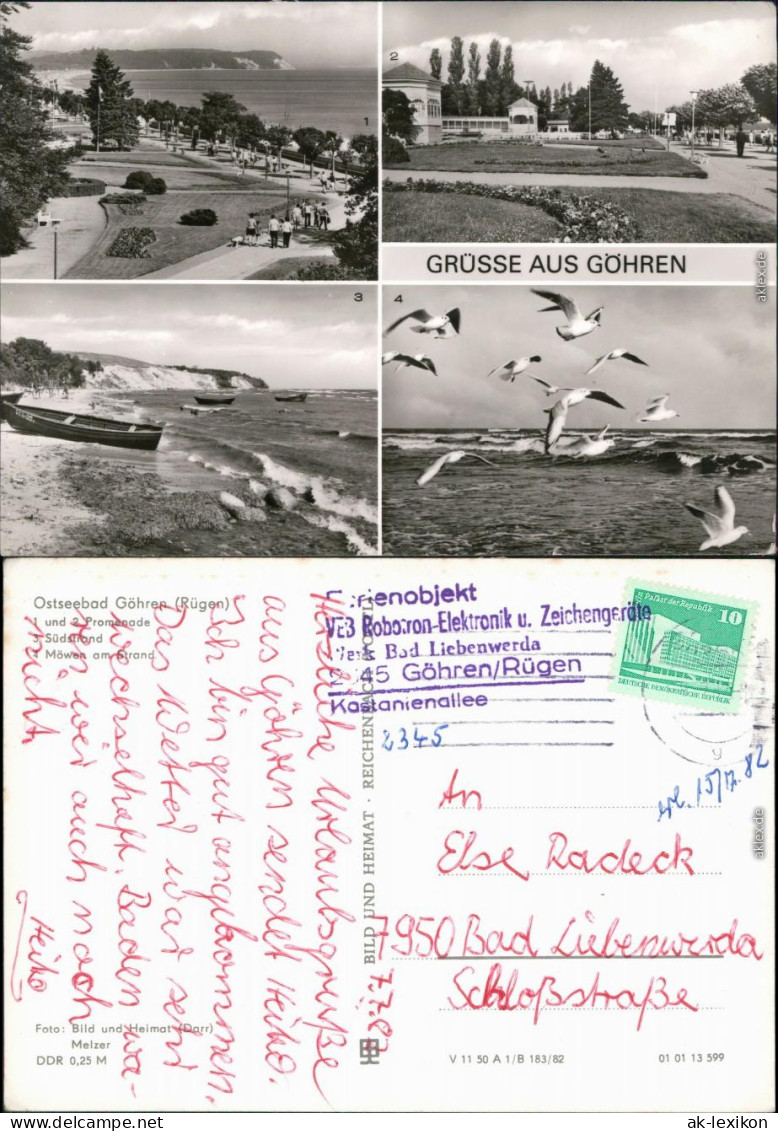 1
2
GRÜSSE AUS GÖHREN
3
4
aklex.de
Ostseebad Göhren (Rügen)
1 und 2 Promenade
3 Südstrand
4 Möwen am Strand
Herzliche Urlaubsgrüße
aus Göhren sendet Heiko.
Ich bin gut angekommen.
Das Wetter war sehr
wechselhaft. Baden wa-
ren wir auch noch
nicht
Heiko
7.7.82
Foto: Bild und Heimat (Darr)
Melzer
DDR 0,25 M
BILD UND HEIMAT · REICHENBACH
Ferienobjekt
VEB Robotron-Elektronik u. Zeichengeräte
Werk Bad Liebenwerda
2345 Göhren/Rügen
Kastanienallee
2345
Palast der Republik
10
DEUTSCHE DEMOKRATISCHE REPUBLIK
erl. 15/7. 82
An
Else Radeck
7950 Bad Liebenwerda
Schloßstraße
V 11 50 A 1/B 183/82
01 01 13 599
aklex.de
© www.ak-lexikon.de
ak-lexikon.com